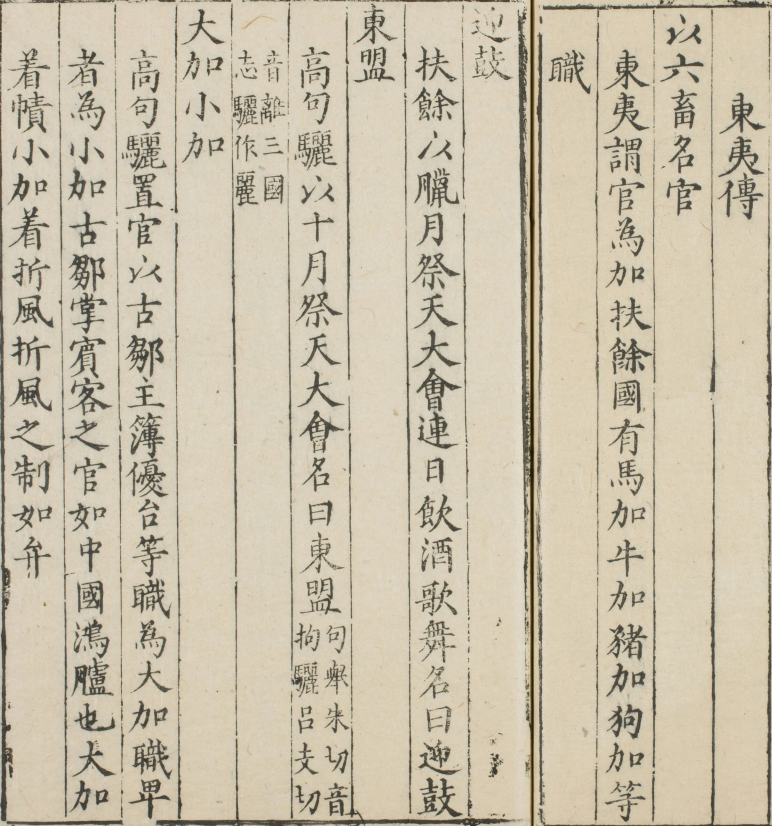 東夷傳
以六畜名官
東夷謂官為加扶餘國有馬加牛加豬加狗加等
職
迎鼓
扶餘以臘月祭天大會連日飲酒歌舞名曰迎鼓
東盟
高句驪以十月祭天大會名曰東盟句舉朱切音拘驪呂支切
音離三國志驪作麗
大加小加
高句驪置官以古鄒主簿優台等職為大加職畀
者為小加古鄒掌賓客之官如中國鴻臚也大加
着幘小加着折風折風之制如弁